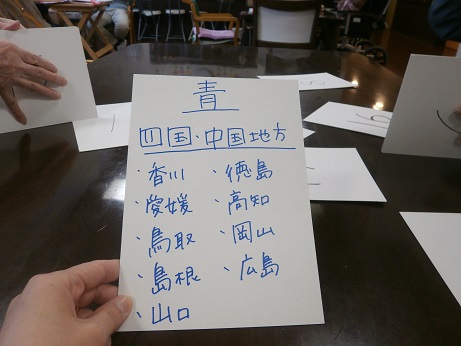 青
四国・中国地方
・香川 ・徳島
・愛媛 ・高知
・鳥取 ・岡山
・島根 ・広島
・山口